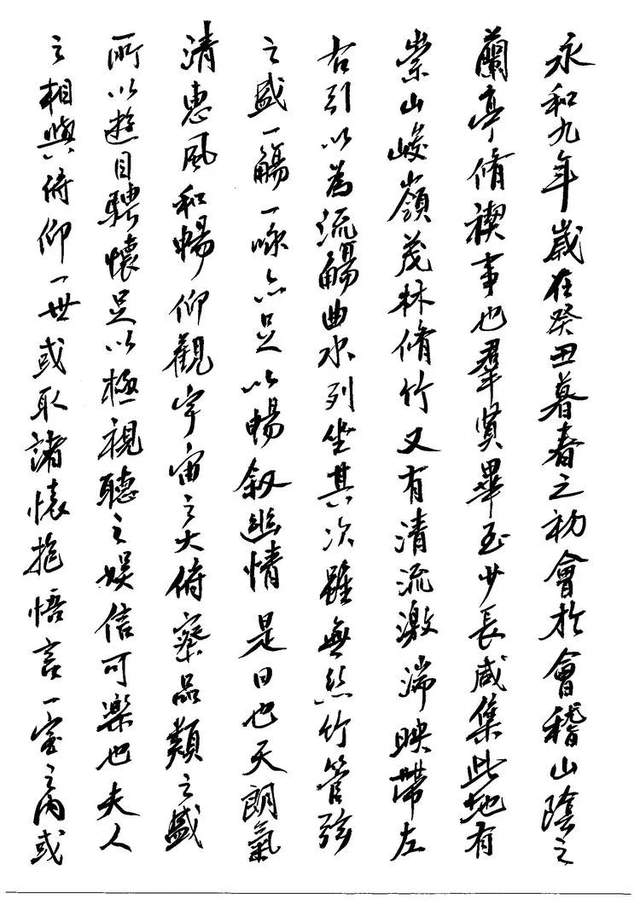 永和九年歲在癸丑暮春之初會於會稽山陰之
蘭亭脩禊事也羣賢畢至少長咸集此地有
崇山峻嶺茂林脩竹又有清流激湍映帶左
右引以為流觴曲水列坐其次雖無絲竹管弦
之盛一觴一詠亦足以暢叙幽情是日也天朗氣
清惠風和暢仰觀宇宙之大俯察品類之盛
所以遊目騁懷足以極視聽之娛信可樂也夫人
之相與俯仰一世或取諸懷抱悟言一室之內或